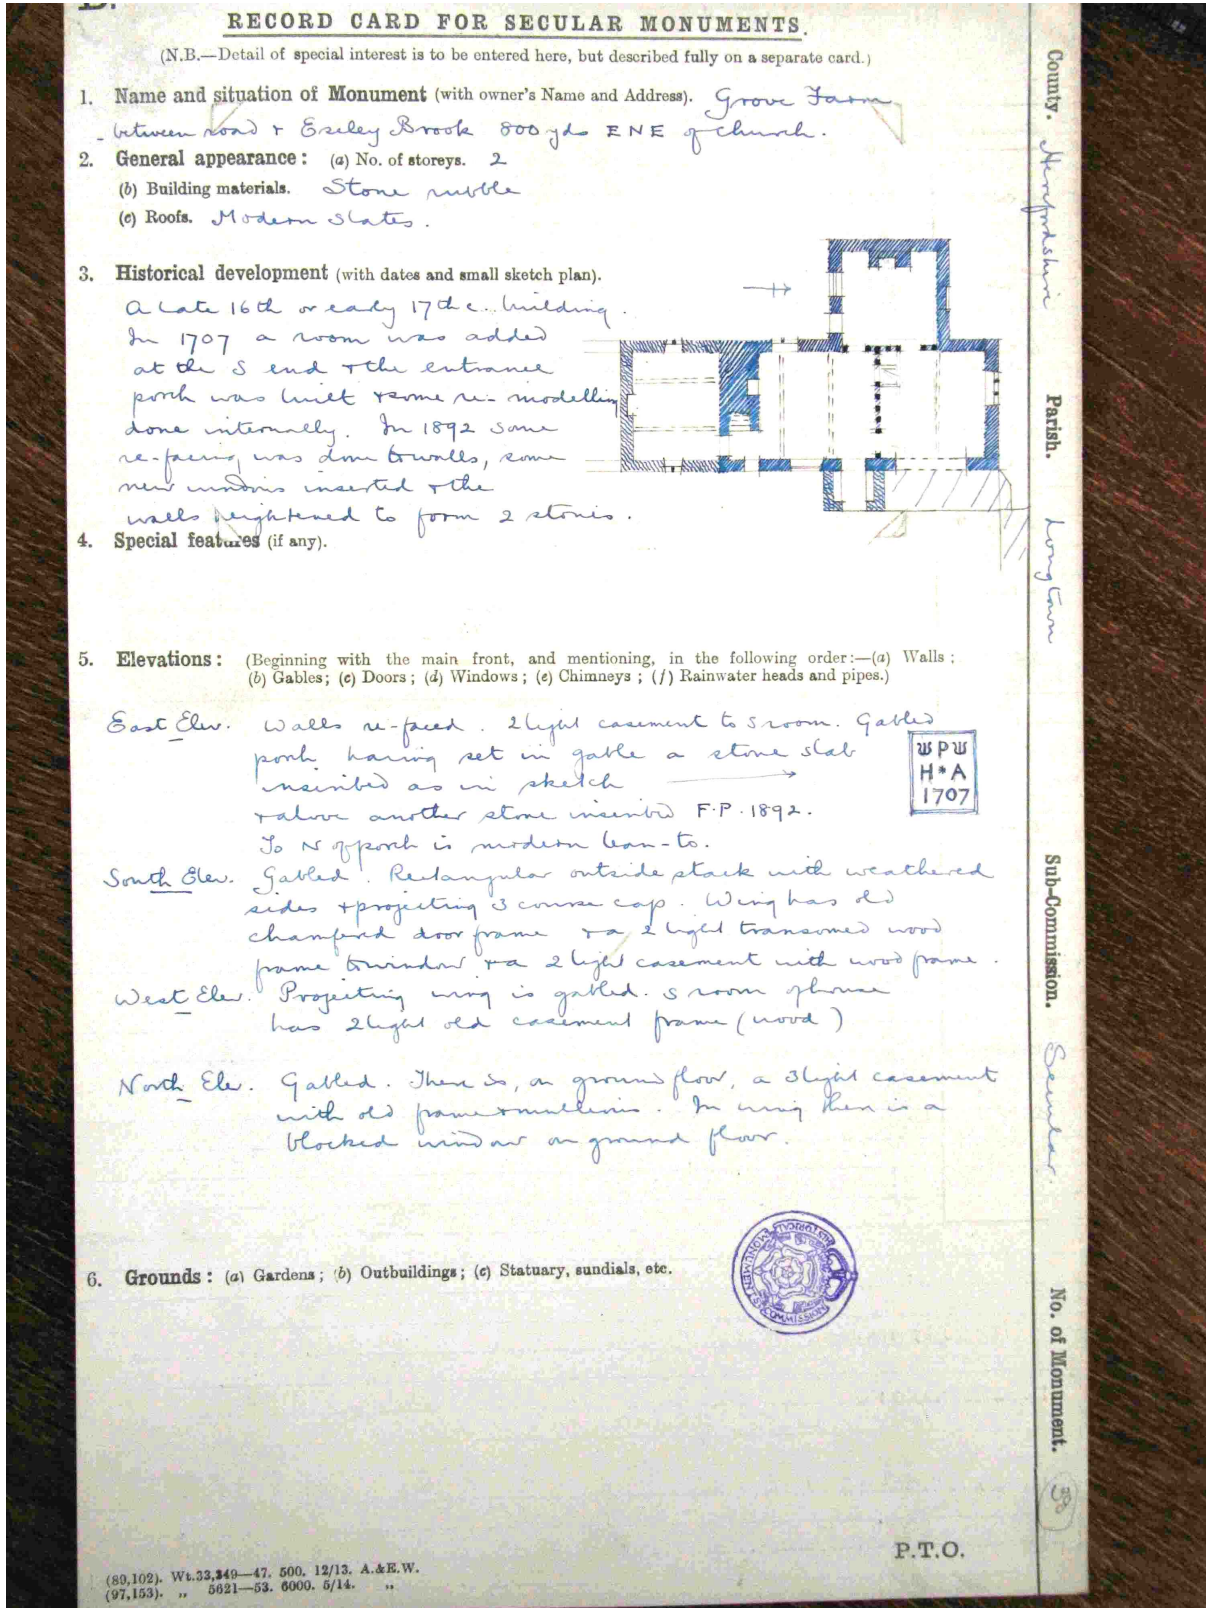 RECORD CARD FOR SECULAR MONUMENTS.
(N.B.—Detail of special interest is to be entered here, but described fully on a separate card.)
1. Name and situation of Monument (with owner's Name and Address). Grove Farm
between road & Escley Brook 800 yds ENE of church.
2. General appearance: (a) No. of storeys. 2
(b) Building materials. Stone rubble
(c) Roofs. Modern slates.
3. Historical development (with dates and small sketch plan).
A late 16th or early 17th c. building.
In 1707 a room was added
at the S end & the entrance
porch was built & some re-modelling
done internally. In 1892 some
re-facing was done to walls, some
new windows inserted & the
walls heightened to form 2 stories.
4. Special features (if any).
5. Elevations: (Beginning with the main front, and mentioning, in the following order:—(a) Walls;
(b) Gables; (c) Doors; (d) Windows; (e) Chimneys; (f) Rainwater heads and pipes.)
East Elev. Walls re-faced. 2 light casement to S room. Gabled
porch having set in gable a stone slab
inscribed as in sketch
WPW
H*A
1707
& above another stone inscribed F.P. 1892.
To N of porch is modern lean-to.
South Elev. Gabled. Rectangular outside stack with weathered
sides & projecting 3 course cap. Wing has old
chamfered door frame & a 2 light transomed wood
frame to window & a 2 light casement with wood frame.
West Elev. Projecting wing is gabled. S room of house
has 2 light old casement frame (wood)
North Elev. Gabled. There is, on ground floor, a 3 light casement
with old frame & mullions. In wing there is a
blocked window on ground floor.
6. Grounds: (a) Gardens; (b) Outbuildings; (c) Statuary, sundials, etc.
HISTORICAL MONUMENTS COMMISSION
P.T.O.
(89,102). Wt.33,349—47. 500. 12/13. A.&E.W.
(97,153). „ 5621—53. 6000. 5/14. „
County. Herefordshire
Parish. Longtown
Sub-Commission. Secular.
No. of Monument. 38